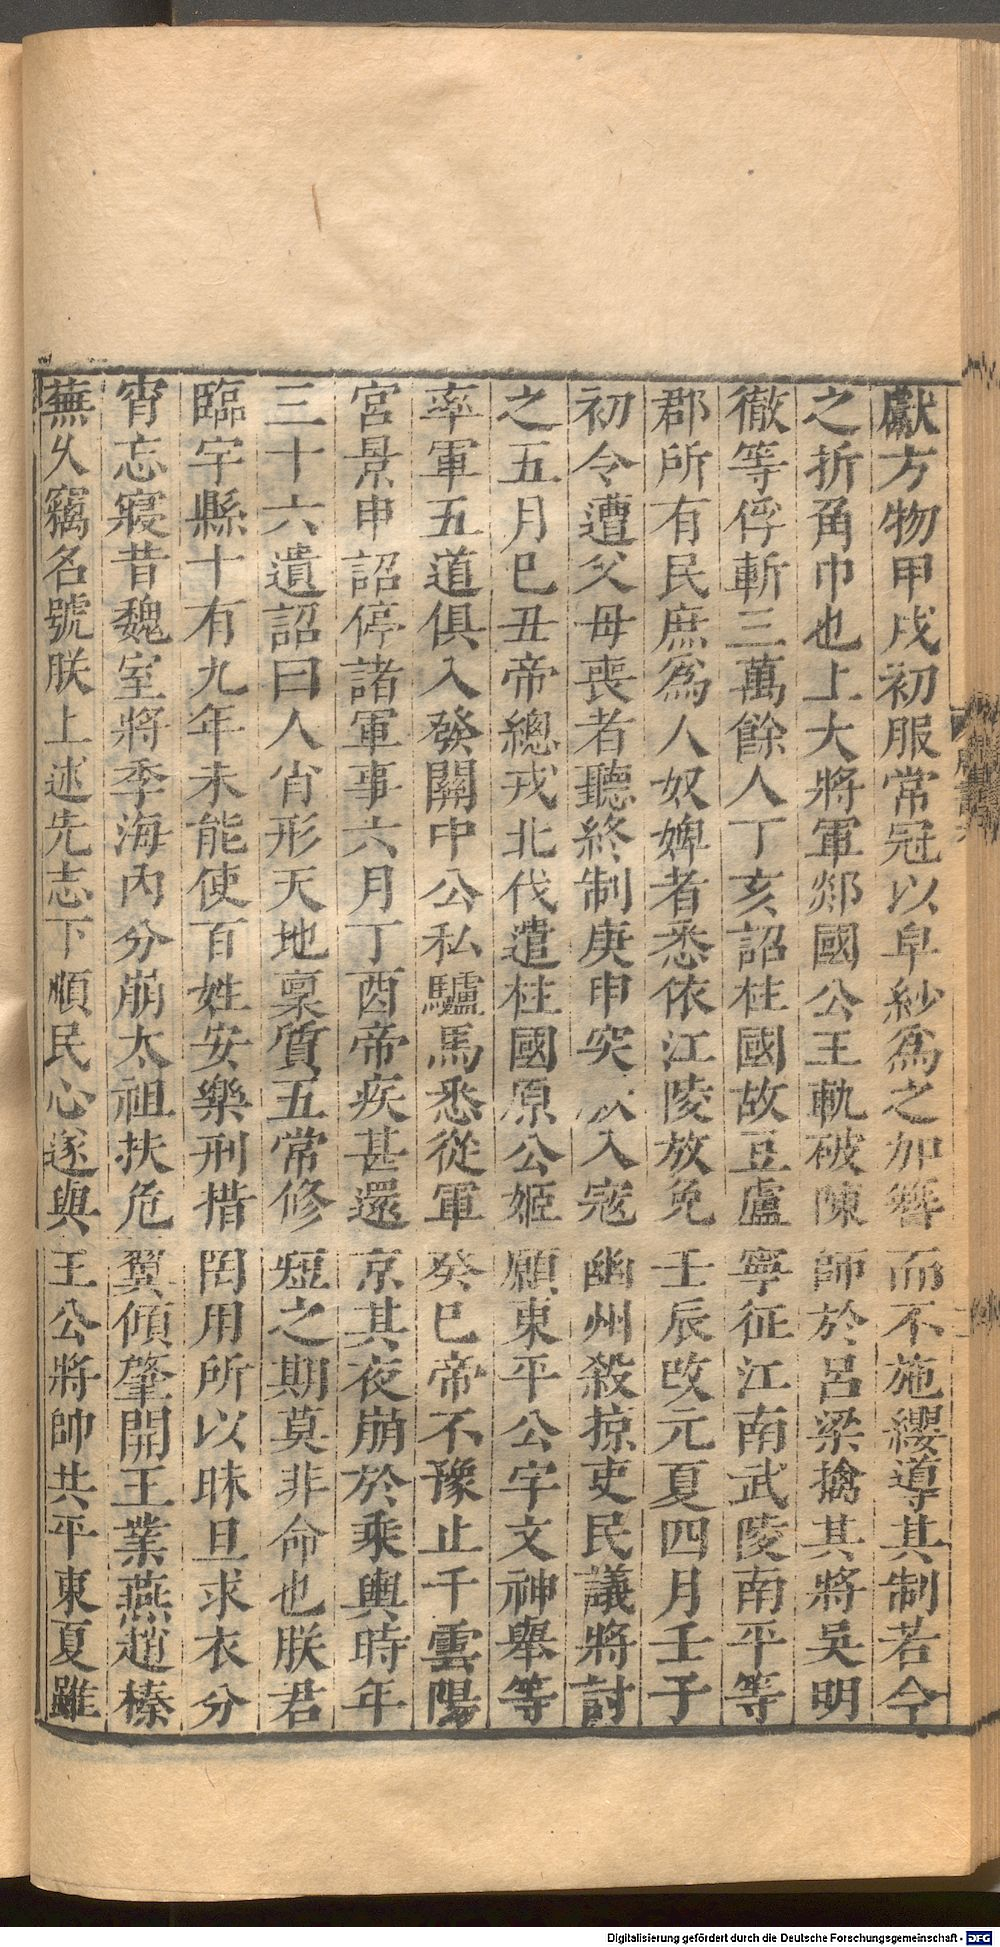 獻方物甲戌初服常冠以皁紗爲之加簪而不施纓導其制若今
之折角巾也上大將軍郯國公王軌破陳師於呂梁擒其將吳明
徹等俘斬三萬餘人丁亥詔柱國故豆盧寧征江南武陵南平等
郡所有民庶爲人奴婢者悉依江陵放免壬辰改元夏四月壬子
初令遭父母喪者聽終制庚申突入寇幽州殺掠吏民議將討
之五月巳丑帝總戎北伐遣柱國原公姬願東平公宇文神舉等
率軍五道俱入發關中公私驢馬悉從軍癸巳帝不豫止于雲陽
宮景申詔停諸軍事六月丁酉帝疾甚還京其夜崩於乘輿時年
三十六遺詔曰人肖形天地稟質五常修短之期莫非命也朕君
臨宇縣十有九年未能使百姓安樂刑措罔用所以昧旦求衣分
宵忘寢昔魏室將季海內分崩太祖扶危翼傾肇開王業燕趙榛
蕪乆竊名號朕上述先志下順民心遂與王公將帥共平東夏雖
Digitalisierung gefördert durch die Deutsche Forschungsgemeinschaft - DFG